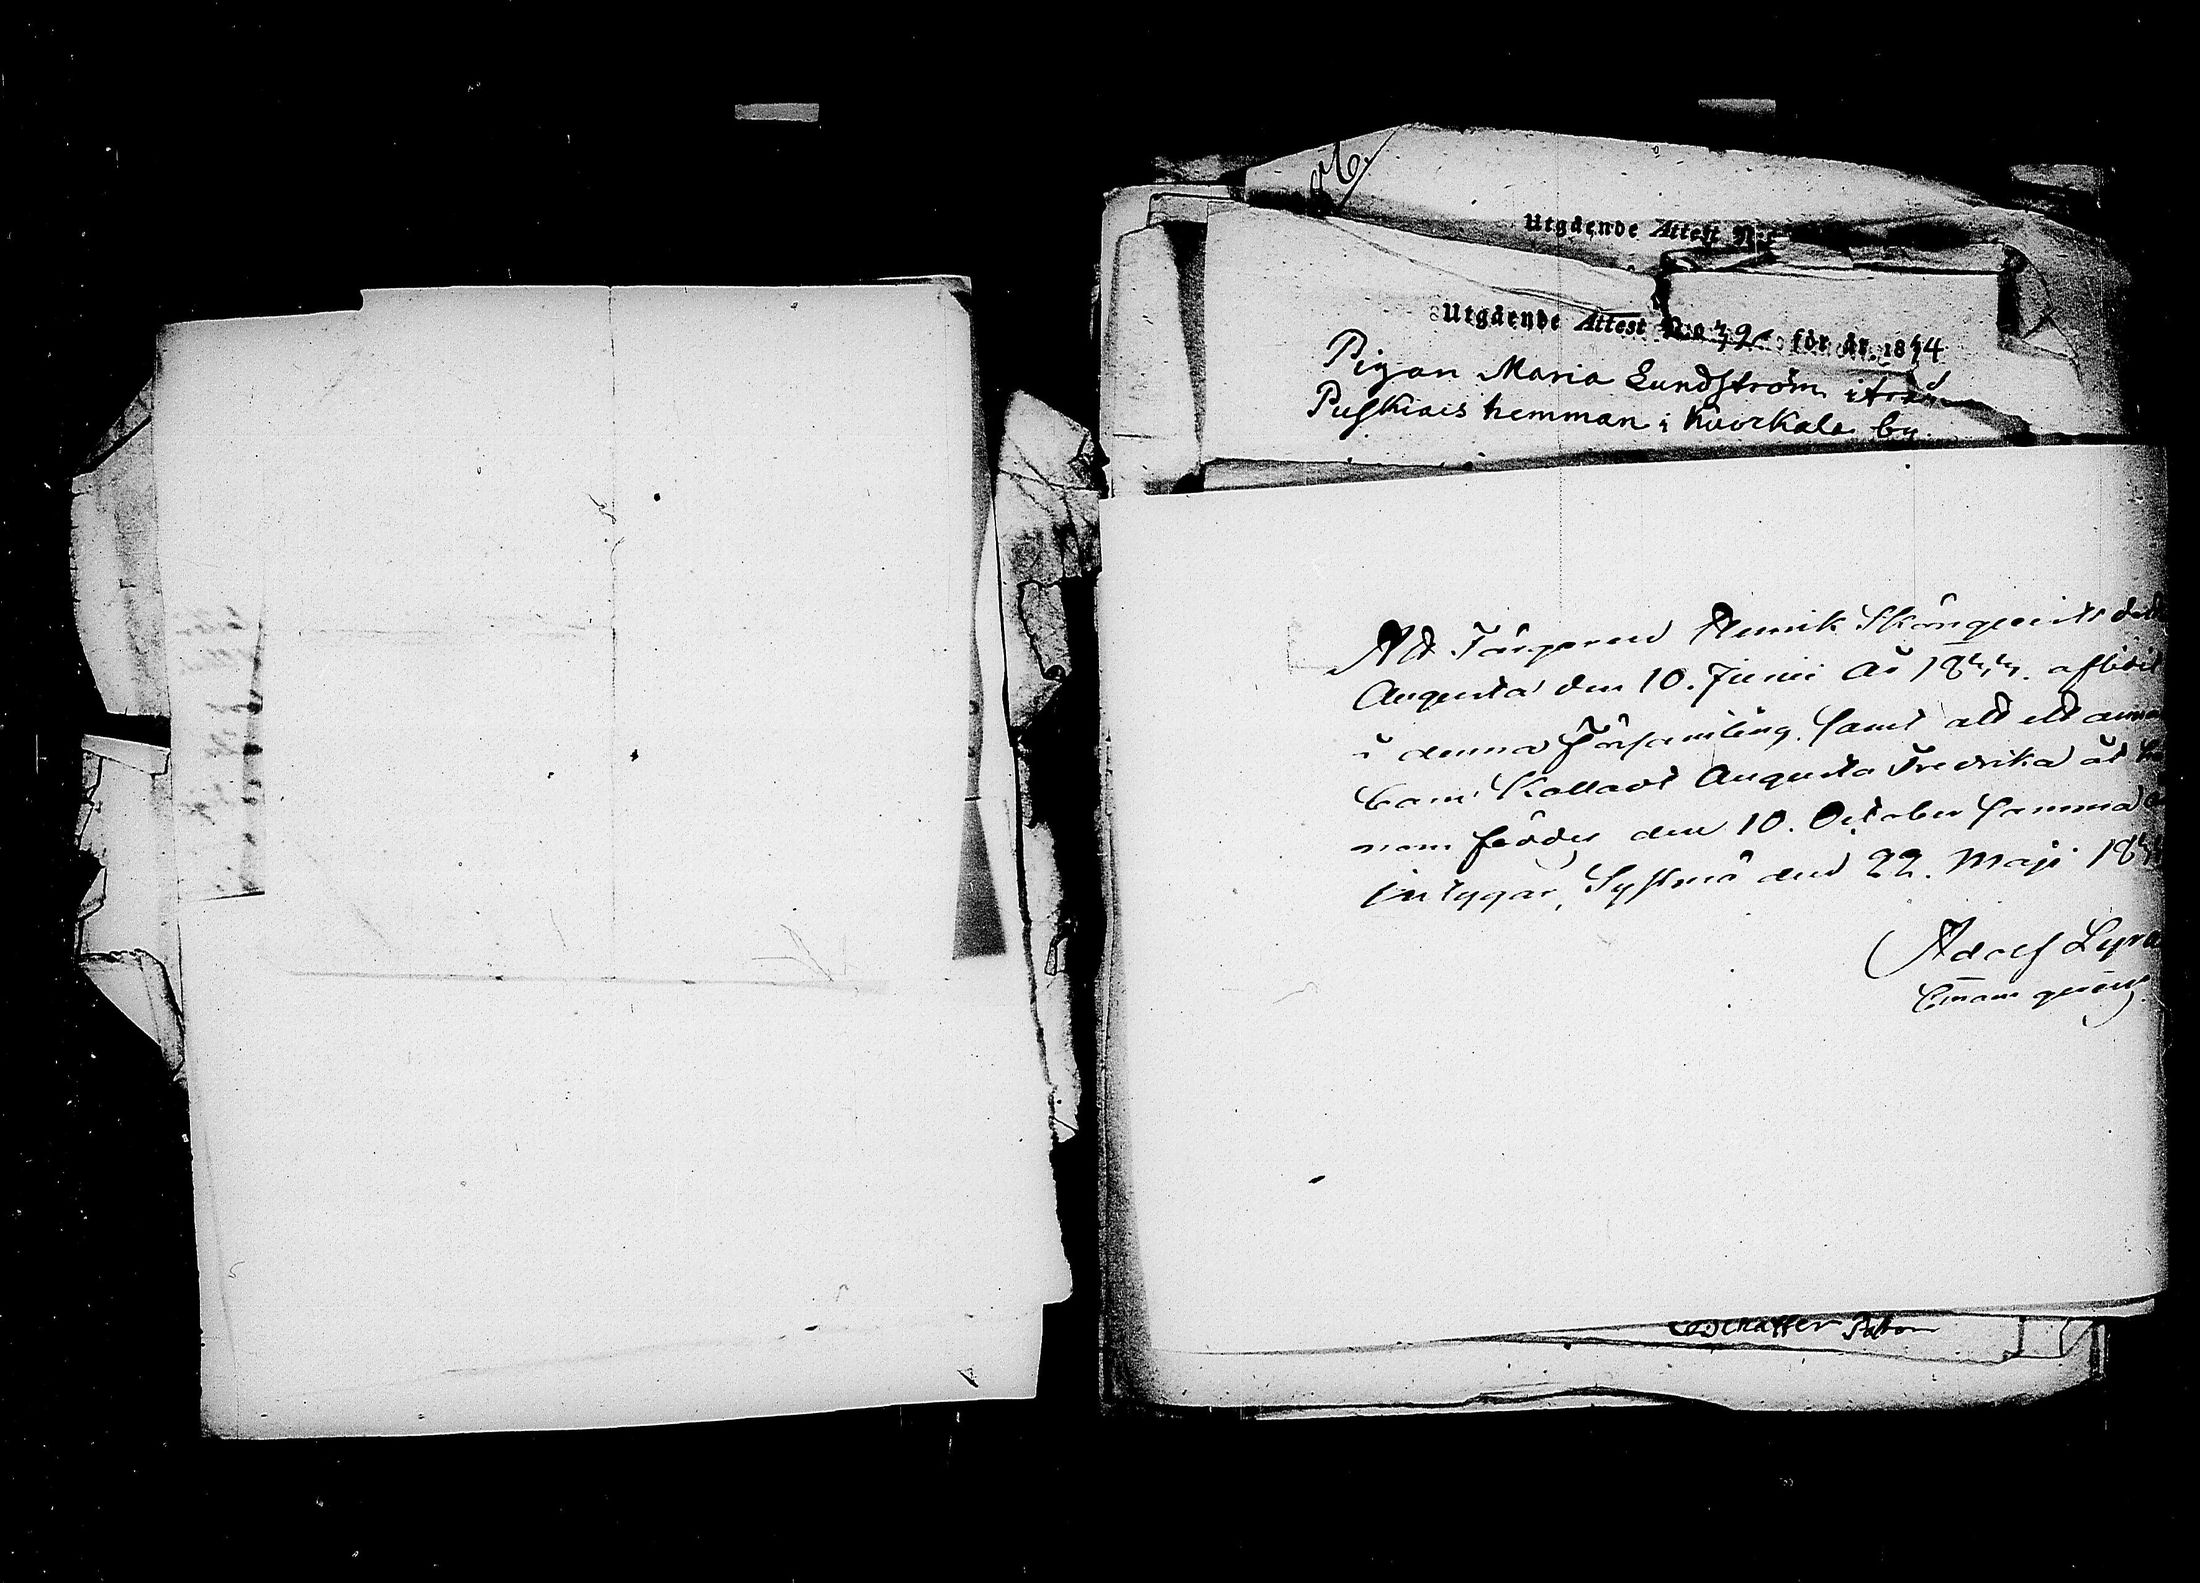 Utgående Attest N:o
Utgående Attest N:o 49 för år 1844
Pigan Maria Lundström ifrån
Puskiais hemman i Kuorkala by.
Att Färgaren Henrik Skångqvists dott
Augusta den 10. Junii År 1844. aflidit
i denna Församling, samt att ett ann
barn Kalladt Augusta Fredrika åt h
nom föddes den 10. October samma
intygar, Sysmä den 22. Maji 184
Adolf Lyra